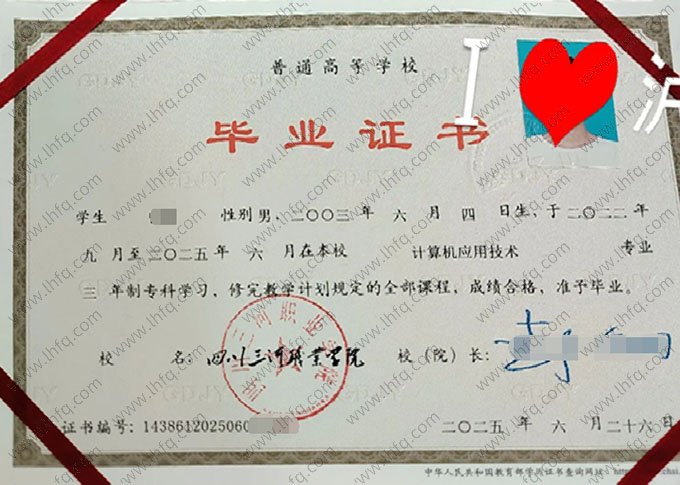 普通高等学校
I
沪
毕业证书
学生 性别 男，二〇〇三年 六 月 四 日生，于二〇二二年
九 月至二〇二五年 六 月在本校 计算机应用技术 专业
三 年制专科学习，修完教学计划规定的全部课程，成绩合格，准予毕业。
四川三河职业学院
校 名：四川三河职业学院 校（院）长：
证书编号：1438612025060 二〇二五年 六 月二十六日
中华人民共和国教育部学历证书查询网址：
www.lhfq.com